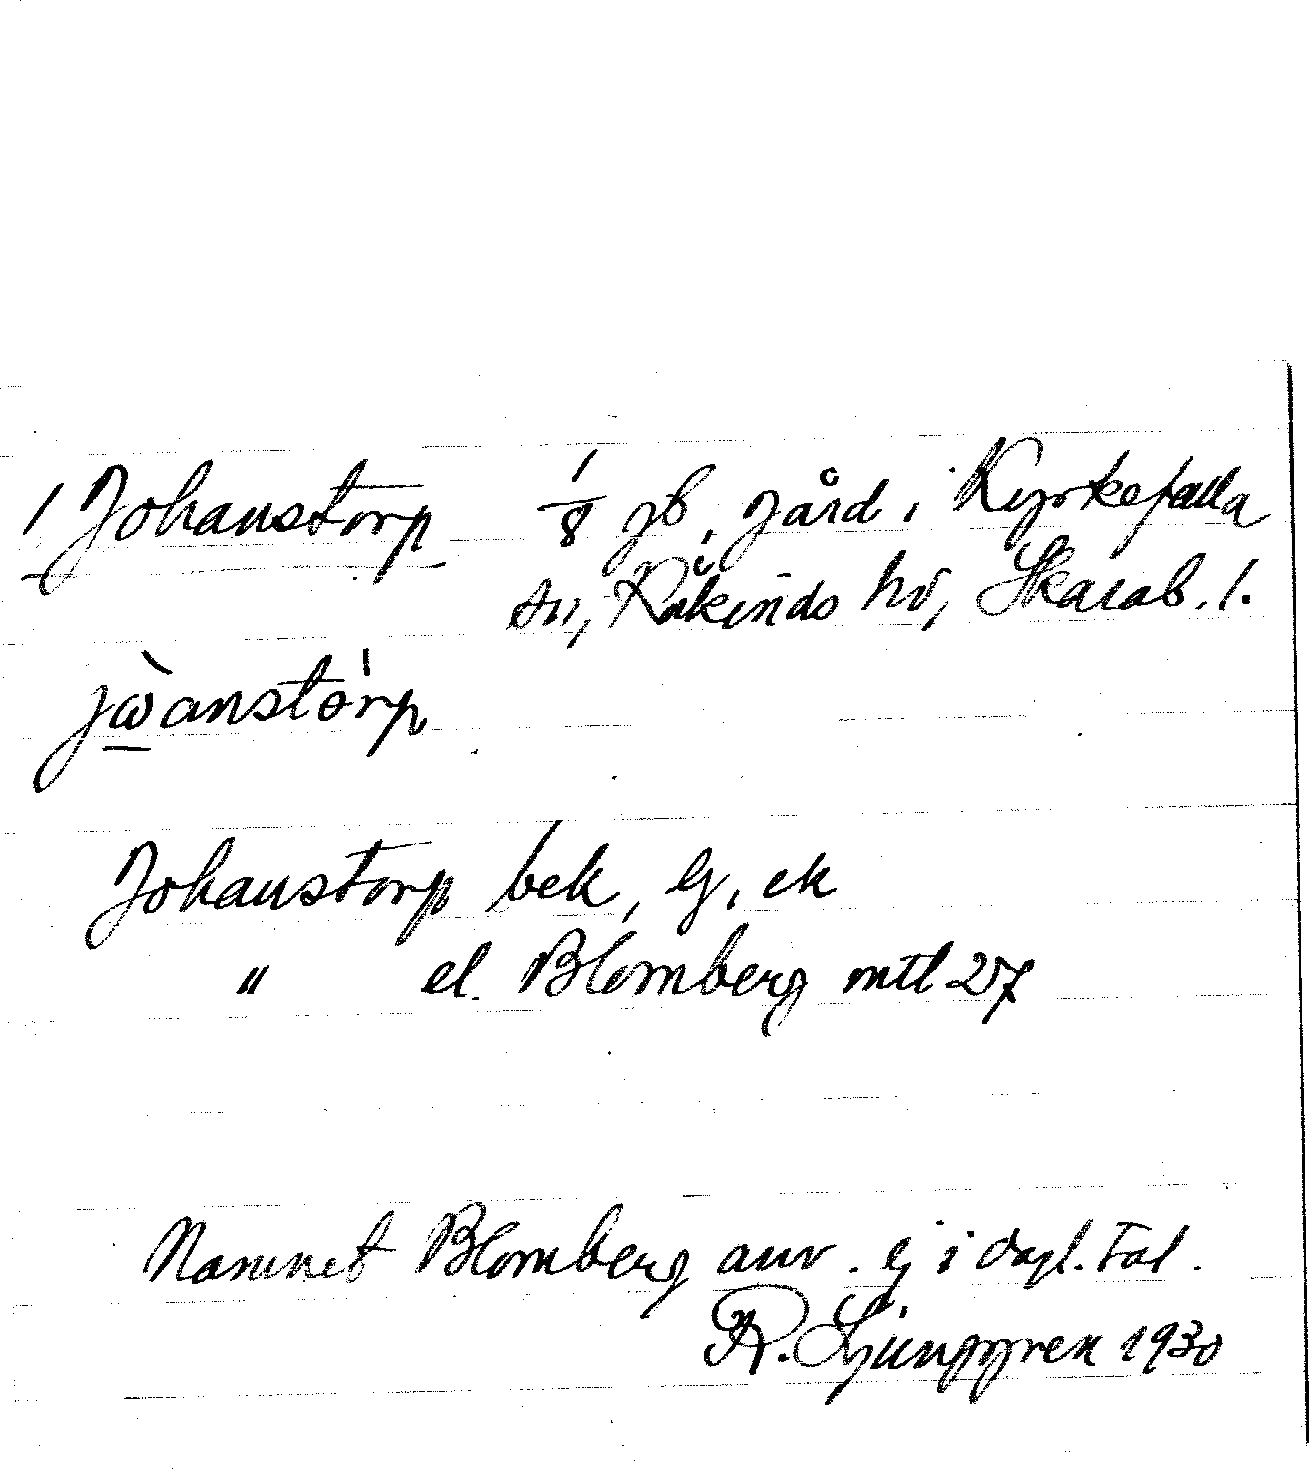 1 Johanstorp 1/8 gb, gård i Kyrkefalla
sn, Kåkinds hd, Skarab. l.
jὼanstórp
Johanstorp bek, Gj, ek
" el. Blomberg mtl 27
Namnet Blomberg anv. ej i dagl. tal.
R. Ljunggren 1930